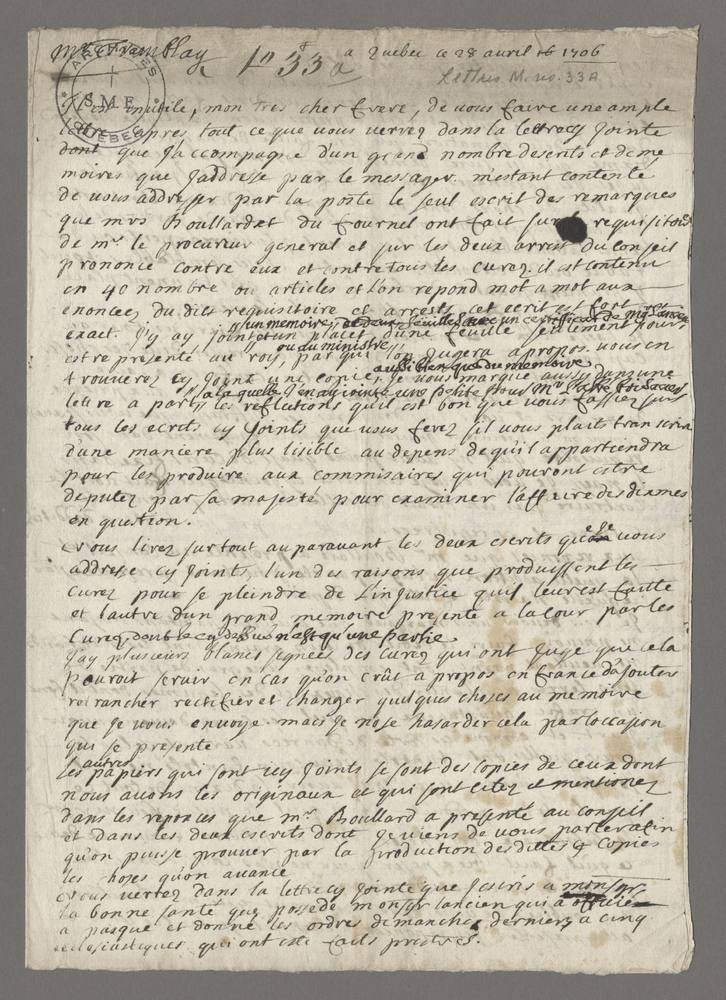 Mr Tremblay
ARCHIVES S.M.E. QUEBEC
1ere 33 a
a Quebec ce 28 avril 1706
Lettres M. no. 33A
Il est inutile, mon tres cher frere, de vous faire une ample
lettre apres tout ce que vous verrez dans la lettre cy jointe
dont que J'accompagne d'un grand nombre d'escrits et de me
moires que J'addresse par le messager. m'estant contenté
de vous addresser par la poste le seul escrit des remarques
que mrs Boullard et du fournel ont fait sur le requisitoire
de mr le procureur general et sur les deux arrest du Conseil
prononcé contre eux et contre tous les Curez. il est contenu
en 40 nombre ou articles et l'on repond mot a mot aux
enoncez du dits requisitoire et arrests, cet ecrit est fort
exact. J'y ay joint un placet d'une feuille seulement pour
un memoire de deux feuilles avec un certificat de mgr l'ancien
ou du ministre
estre presenté au roy par qui l'on jugera a propos. vous en
aussi bien que du memoire
trouverez cy joint une copie, Je vous marque aussi dans une
a laquelle J'en ay jointe une petite pour Mr
lettre a part les reflections qu'il est bon que vous fassiez sur
tous les ecrits cy joints que vous ferez s'il vous plait transcrire
d'une maniere plus lisible au depens de qu'il appartiendra
pour les produire aux commisaires qui pouront estre
deputez par sa majesté pour examiner l'affaire des dixmes
en question.
Vous lirez sur tout auparavant les deux escrits que je vous
addresse cy joints, l'un des raisons que produissent les
Curez pour se pleindre de L'injustice qu'il leur est faitte
et l'autre d'un grand memoire presenté a la Cour par les
Curez, dont le cy dessus n'est qu'une partie.
J'ay plusieurs blancs signées des Curez qui ont Jugé que cela
pouroit servir en cas qu'on crût a propos en france d'ajouter
retrancher rectifier et changer quelques choses au memoire
que Je vous envoye. mais Je n'ose hasarder cela par l'occasion
qui se presente
autres
Les papiers qui sont icy Joints se sont des copies de ceux dont
nous avons les originaux et qui sont citez et mentionez
dans les reponces que mr Boullard a presenté au Conseil
et dans les deux escrits dont Je viens de vous parler afin
qu'on puisse prouver par la production des dittes copies
les choses qu'on avance
Vous verrez dans la lettre cy jointe que J'escris a monsgr
la bonne santé que possede monsgr l'ancien qui a officié
a pasque et donné les ordres dimanche dernier a cinq
ecclesiastiques qui ont esté faits prestres.